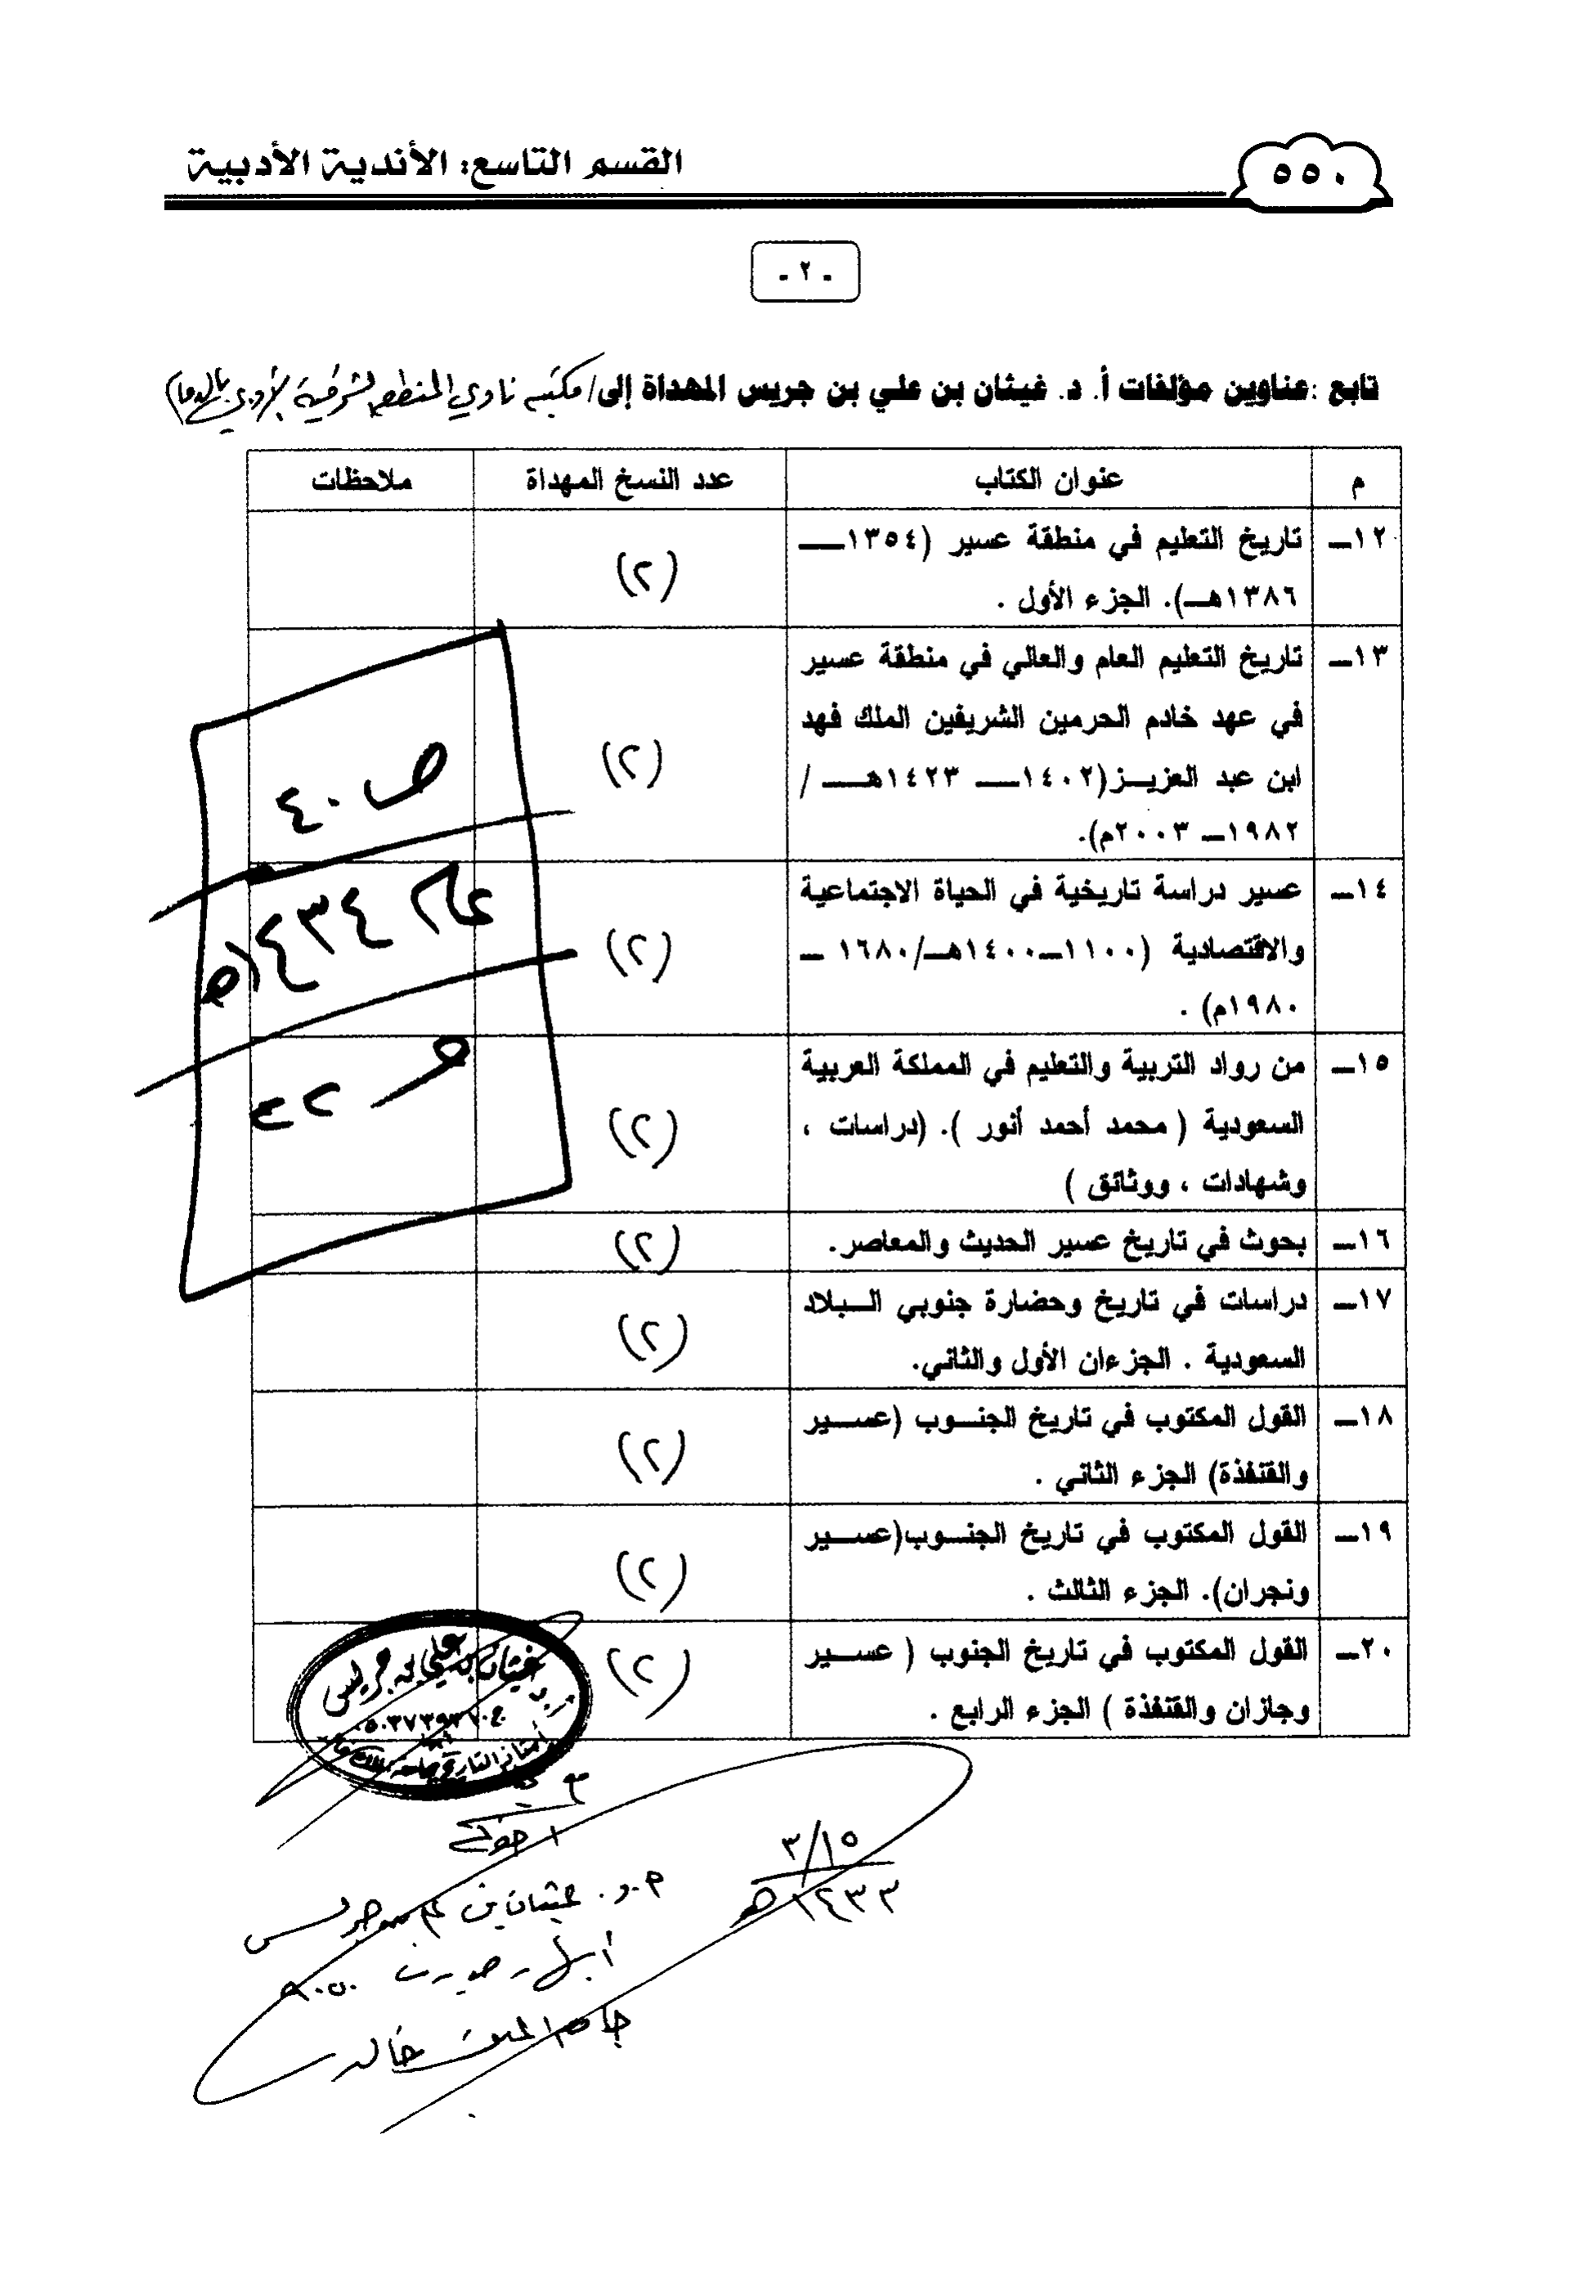 ٥٥٠
القسم التاسع: الأندية الأدبية
- ٢ -
تابع :عناوين مؤلفات أ. د. غيثان بن علي بن جريس المهداة إلى/ مكتبة نادي المنطقة الشرقية الأدبي بالدمام
م عنوان الكتاب عدد النسخ المهداة ملاحظات
١٢ـ تاريخ التعليم في منطقة عسير (١٣٥٤ـــ
١٣٨٦هــ). الجزء الأول .
(٢)
١٣ـ تاريخ التعليم العام والعالي في منطقة عسير
في عهد خادم الحرمين الشريفين الملك فهد
ابن عبد العزيــز(١٤٠٢ـــ ١٤٢٣هـــ /
١٩٨٢ـ ٢٠٠٣م).
(٢)
١٤ـ عسير دراسة تاريخية في الحياة الاجتماعية
والاقتصادية (١١٠٠ـ١٤٠٠هـ/١٦٨٠ ـ
١٩٨٠م) .
(٢)
١٥ـ من رواد التربية والتعليم في المملكة العربية
السعودية ( محمد أحمد أنور ). (دراسات ،
وشهادات ، ووثائق )
(٢)
١٦ـ بحوث في تاريخ عسير الحديث والمعاصر.
(٢)
١٧ـ دراسات في تاريخ وحضارة جنوبي الــبلاد
السعودية . الجزءان الأول والثاني.
(٢)
١٨ـ القول المكتوب في تاريخ الجنــوب (عســـير
والقنفذة) الجزء الثاني .
(٢)
١٩ـ القول المكتوب في تاريخ الجنــوب(عســـير
ونجران). الجزء الثالث .
(٢)
٢٠ـ القول المكتوب في تاريخ الجنوب ( عســـير
وجازان والقنفذة ) الجزء الرابع .
(٢)
ص ٤٠
عام ١٤٣٤هـ
غيثان بن علي بن جريس
أستاذ التاريخ جامعة الملك خالد
٣/١٥
١٤٣٣هـ
أ.د. غيثان بن علي بن جريس
أبها
جامعة الملك خالد